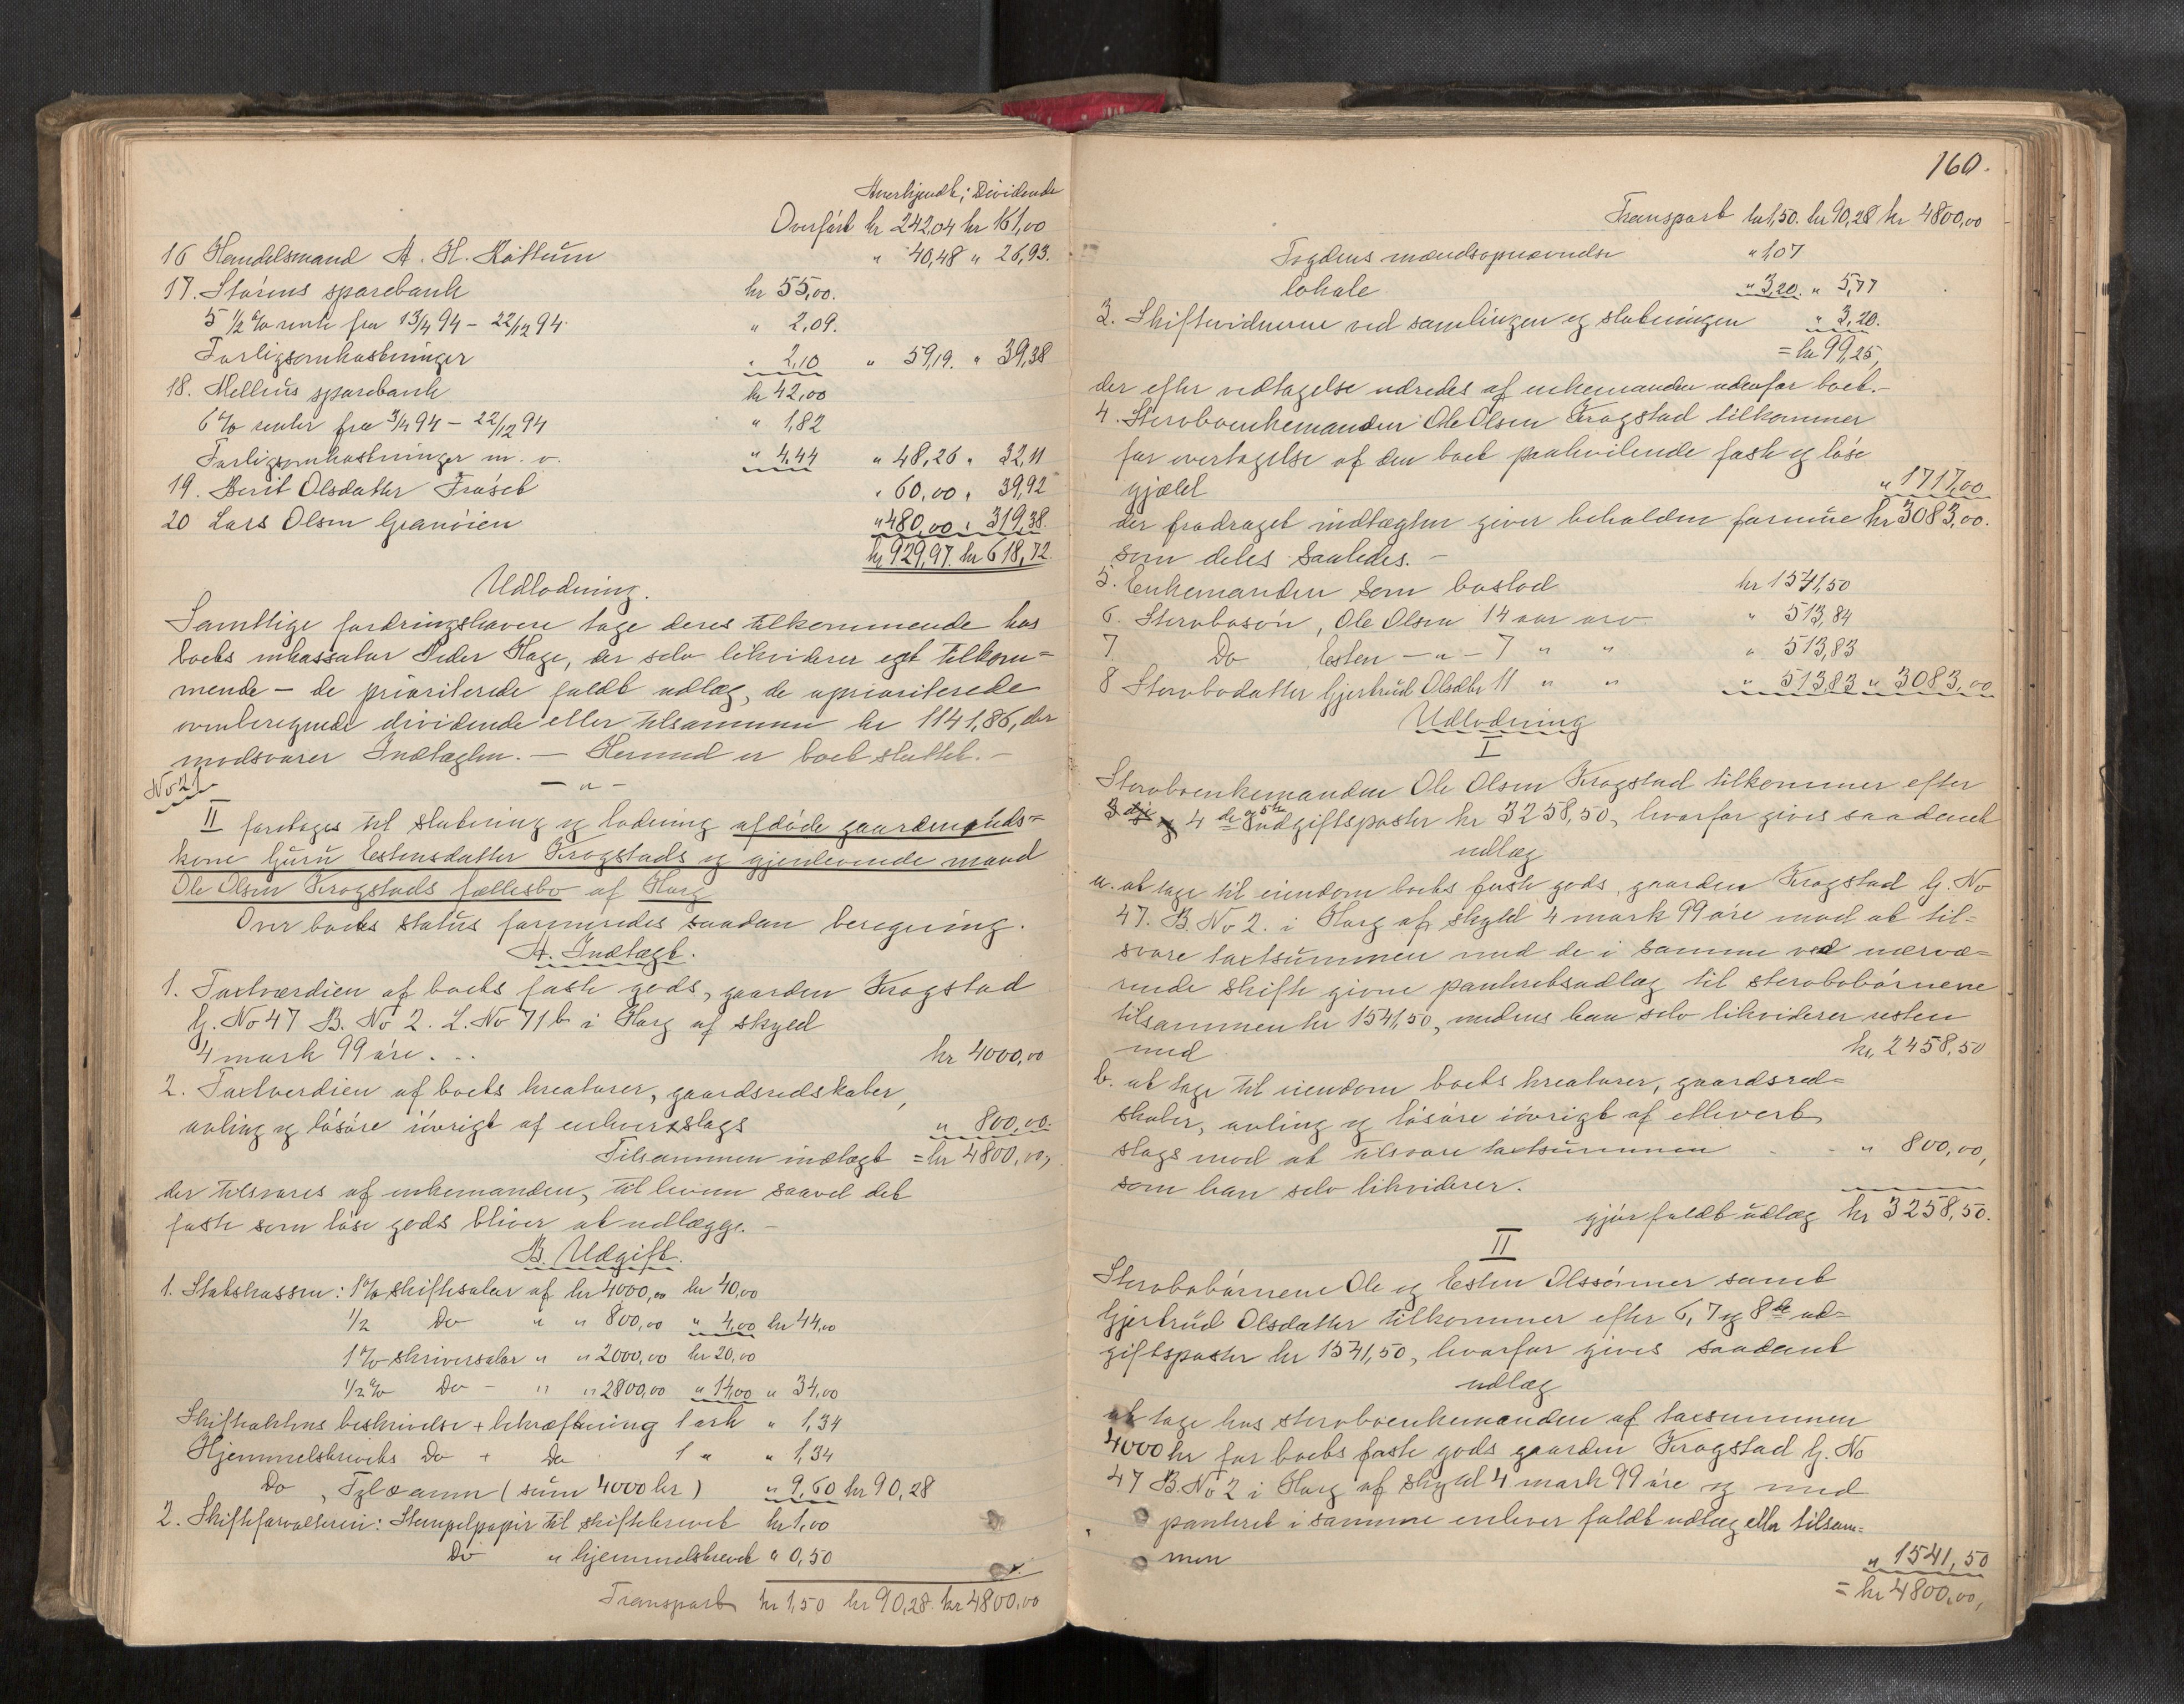 Anerkjendt; Dividende
Overført kr 242,04 kr 161,00
16 Handelsmand A. H. Kottum " 40,48 " 26,93.
17. Størens sparebank kr 55,00.
5 1/2 % rente fra 13/4 94 – 22/12 94. " 2,09.
Forligsomkostninger " 2,10 " 59,19. " 39,38
18. Melhus sparebank kr 42,00
6 % renter fra 3/4 94 – 22/12 94 " 1,82
Forligsomkostninger m. v. " 4,44 " 48,26 " 32,11
19. Berit Olsdatter Frøset " 60,00 " 39,92
20 Lars Olsen Granøien " 480,00 " 319,38.
kr 929,97. kr 618,72.
Udlodning.
Samtlige fordringshavere tage deres tilkommende hos
boets inkassator Peder Hage, der selv likviderer eget tilkom=
mende – de prioriterede fuldt udlæg, de uprioriterede
ovenberegnede dividende eller tilsammen kr 1141,86, der
modsvarer Indtægten. – Hermed er boet sluttet. –
No 21
– " –
II foretages til slutning og lodning afdøde gaardmands=
kone Guru Estensdatter Krogstads og gjenlevende mand
Ole Olsen Krogstads fællesbo af Horg
Over boets status formeredes saadan beregning.
A. Indtægt.
1. Taxtværdien af boets faste gods, gaarden Krogstad
G. No 47 B. No 2. L. No 71b i Horg af skyld
4 mark 99 øre. . . kr 4000,00
2. Taxtverdien af boets kreaturer, gaardsredskaber,
avling og løsøre iøvrigt af enhver slags " 800,00.
Tilsammen indtægt = kr 4800,00,
der tilsvares af enkemanden, til hvem saavel det
faste som løse gods bliver at udlægge. –
B. Udgift.
1. Statskassen: 1 % skiftesalær af kr 4000,00 kr 40,00
1/2 Do " " 800,00 " 4,00 kr 44,00
1 % skriversalær " " 2000,00 kr 20,00
1/2 % Do – " " 2800,00 " 14,00 " 34,00
Skifteaktens beskrivelse + bekræftning 1 ark " 1,34
Hjemmelsbrevets Do + Do 1 " " 1,34
Do , Tgl. (sum 4000 kr) " 9,60 kr 90,28
2. Skifteforvalteren: Stempelpapir til skiftebrevet kr 1,00
Do " hjemmelsbrevet " 0,50
Transport kr 1,50 kr 90,28. kr 4800,00
160.
Transport kr 1,50. kr 90,28 kr 4800,00
Fogdens mændsopnævnelse " 1,07
lokale " 3,20. " 5,77
3. Skiftevidnerne ved samlingen og slutningen " 3,20.
= kr 99,25,
der efter vedtagelse udredes af enkemanden udenfor boet. –
4. Sterboenkemanden Ole Olsen Krogstad tilkommer
for overtagelse af den boet paahvilende faste og løse
gjæld " 1717,00
der fradraget indtægten giver beholden formue kr 3083,00.
som deles saaledes. –
5. Enkemanden som boslod kr 1541,50
6. Sterbosøn, Ole Olsen 14 aar arv " 513,84
7. Do Esten – " – 7 " " " 513,83
8 Sterbodatter Gjertrud Olsdtr 11 " " " 513,83 " 3083,00
Udlodning
I
Sterboenkemanden Ole Olsen Krogstad tilkommer efter
4de og 5te udgiftsposter kr 3258,50, hvorfor gives saadant
udlæg
a. at tage til eiendom boets faste gods, gaarden Krogstad G. No
47. B. No 2. i Horg af skyld 4 mark 99 øre mod at til=
svare taxtsummen med de i samme ved nærvæ=
rende skifte givne panteretsudlæg til sterbobørnene
tilsammen kr 1541,50, medens han selv likviderer resten
med kr. 2458,50
b. at tage til eiendom boets kreaturer, gaardsred=
skaber, avling og løsøre iøvrigt af ethvert
slags mod at tilsvare taxtsummen " 800,00,
som han selv likviderer.
gjør fuldt udlæg kr 3258,50.
II
Sterbobørnene Ole og Esten Olssønner samt
Gjertrud Olsdatter tilkommer efter 6, 7 og 8de ud=
giftsposter kr 1541,50, hvorfor gives saadant
udlæg
at tage hos sterboenkemanden af taxsummen
4000 kr for boets faste gods gaarden Krogstad G. No
47 B. No 2 i Horg af skyld 4 mark 99 øre og med
panteret i samme enhver fuldt udlæg eller tilsam=
men " 1541,50
= kr 4800,00,